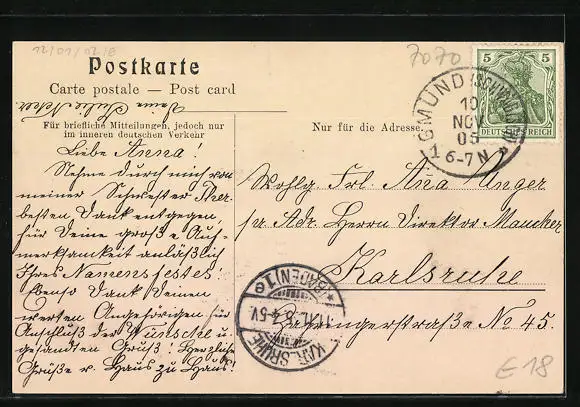 12/01/02/6
7070
Postkarte
Carte postale — Post card
Deine Julie
Für briefliche Mitteilungen, jedoch nur
im inneren deutschen Verkehr
Nur für die Adresse
5 5
DEUTSCHES REICH
GMÜND (SCHWÄBISCH)
10
NOV
05
6-7 N
1
Liebe Anna!
Nehme durch mich von
meiner Schwester Ther.
besten Dank entgegen,
für Deine große Auf-
merksamkeit anläßlich
Ihres Namensfestes!
Ebenso Dank Deinen
werten Angehörigen für
Anschluß der Wünsche u
gesandten Gruß! Herzliche
Grüße v. Haus zu Haus!
Wohlg. Frl. Ana Unger
pr. Adr. Herrn Direktor Maucher
Karlsruhe
No 45.
KARLSRUHE (BADEN) 1e
4-5V.
E18